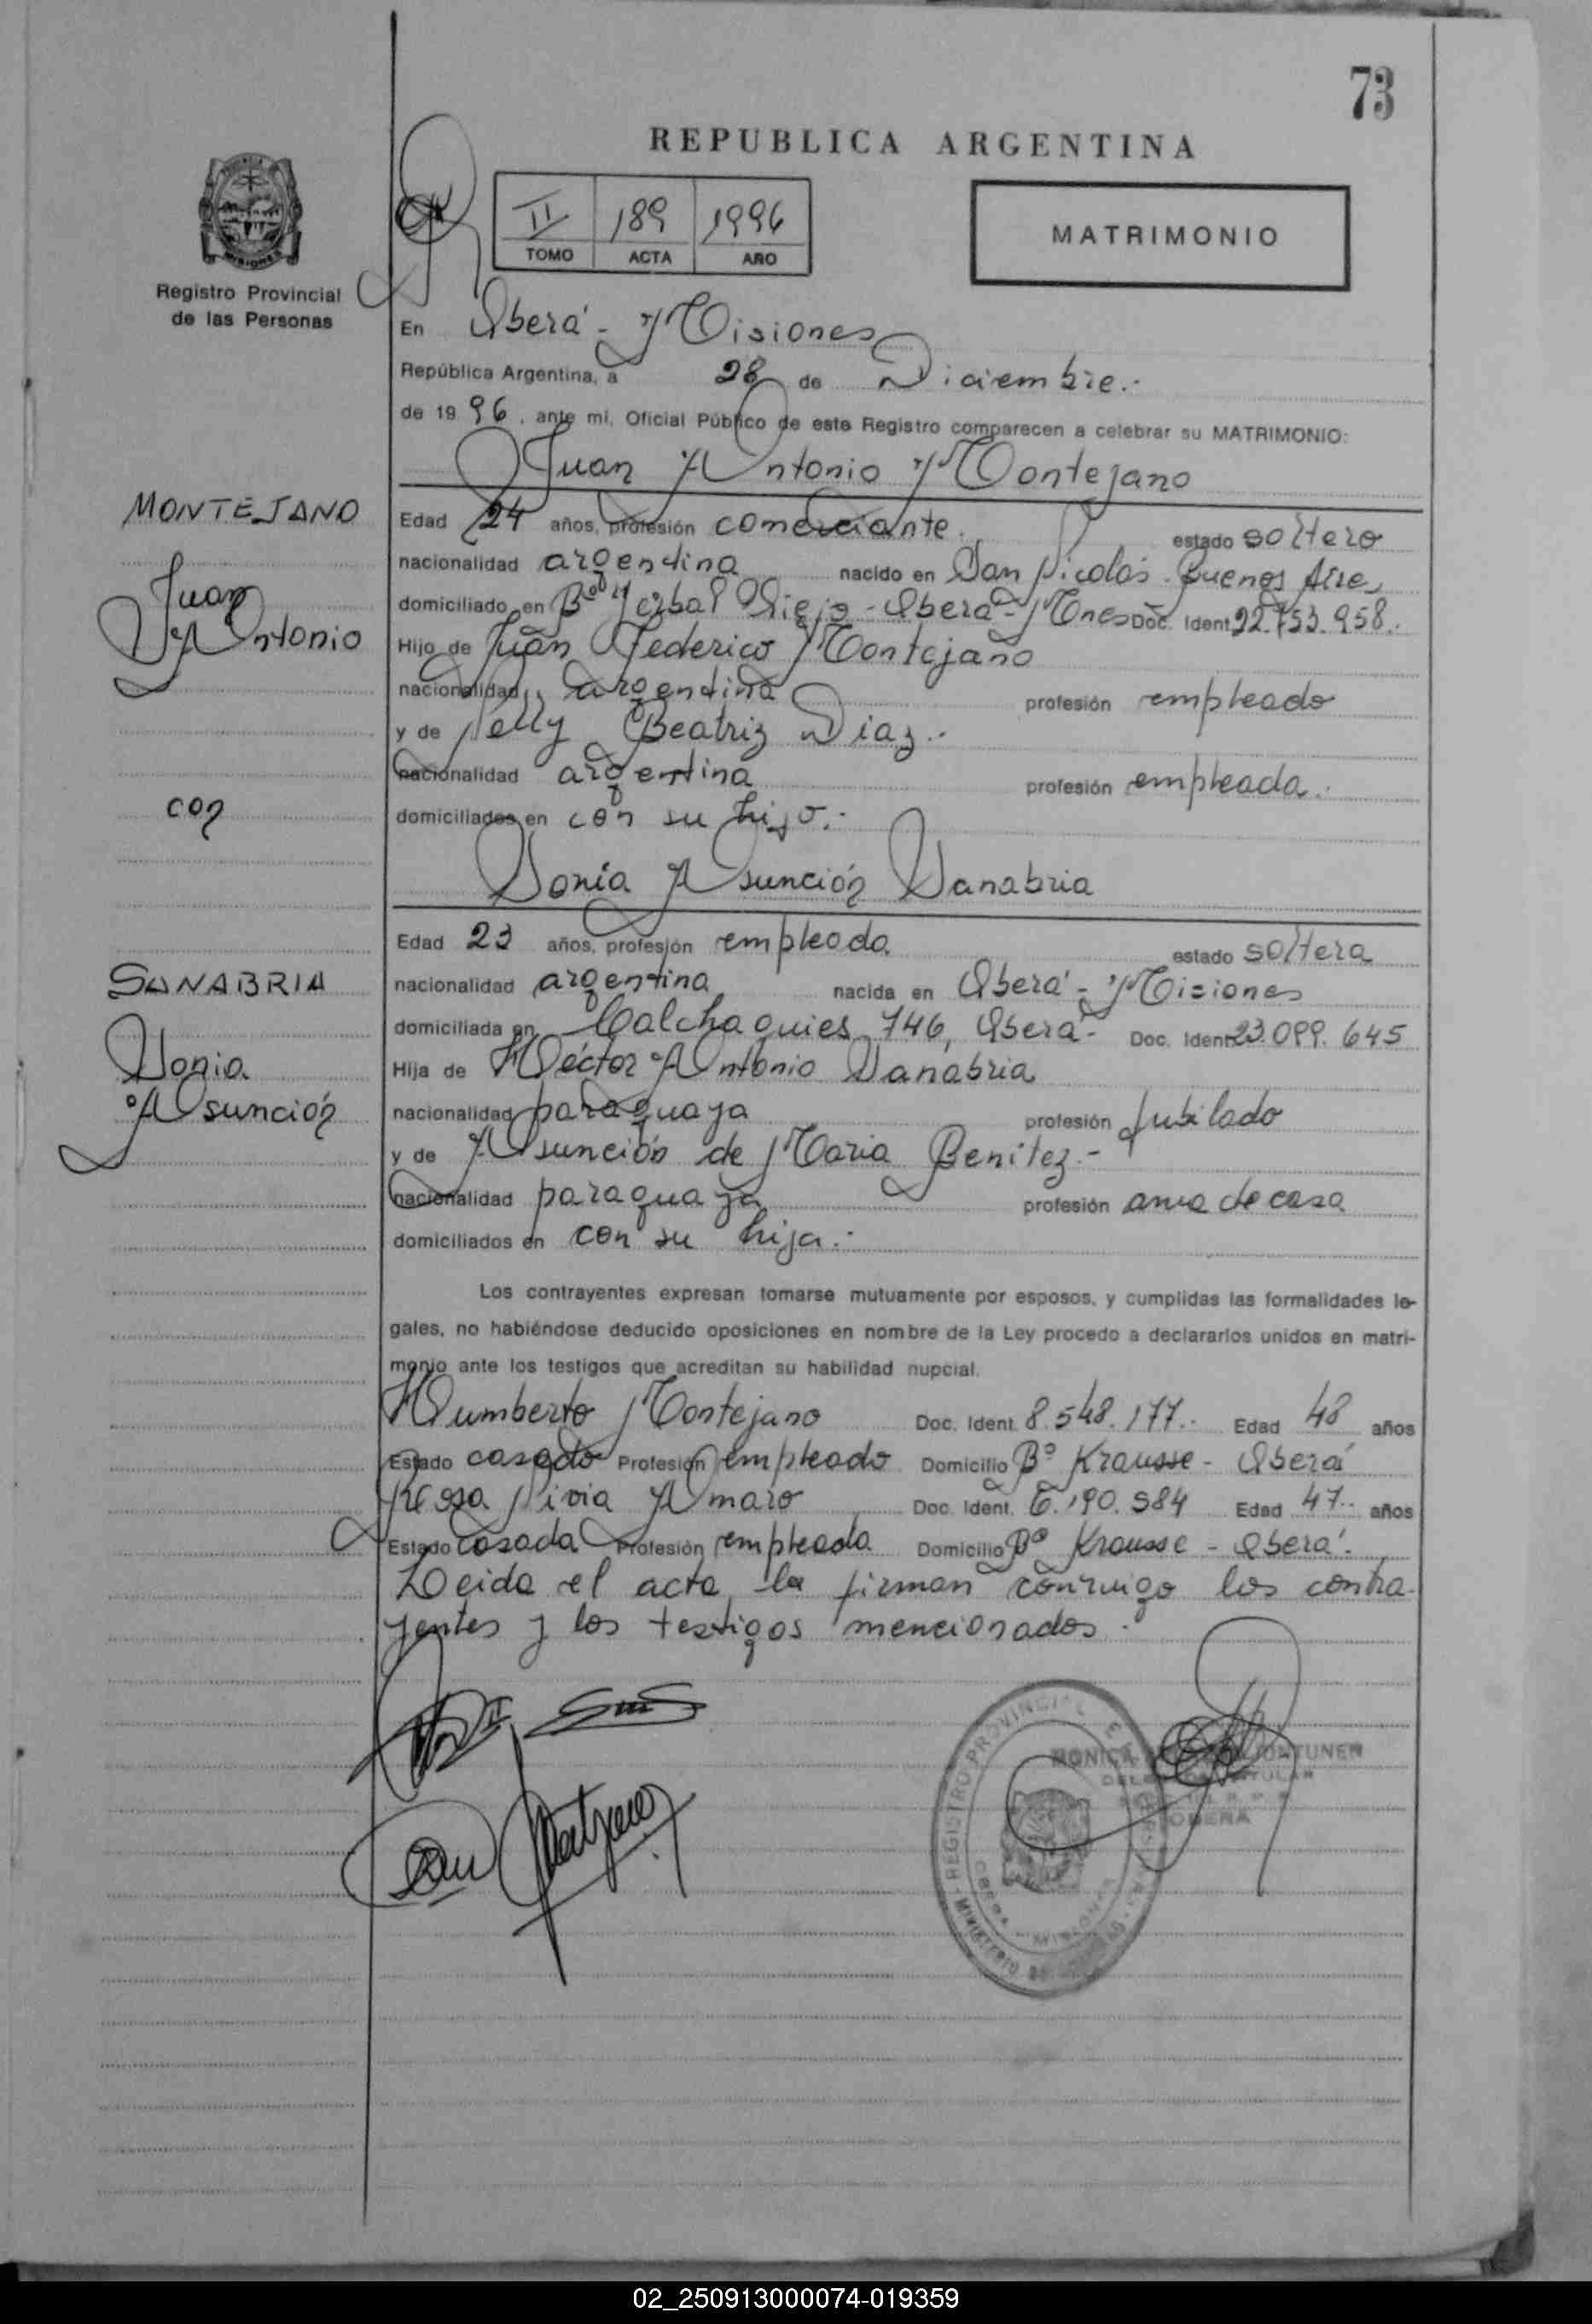 73
REPUBLICA ARGENTINA
II 189 1996
TOMO ACTA AÑO
MATRIMONIO
MISIONES
Registro Provincial
de las Personas
En Oberá - Misiones
República Argentina, a 28 de Diciembre.-
de 19 96, ante mi, Oficial Público de este Registro comparecen a celebrar su MATRIMONIO:
Juan Antonio Montejano
MONTEJANO
Juan
Antonio
con
SANABRIA
Sonia
Asunción
Edad 24 años, profesión comerciante. estado soltero
nacionalidad argentina nacido en San Nicolás - Buenos Aires
domiciliado en Bº Yerbal Viejo - Oberá - Mnes Doc. Ident. 22.753.958.
Hijo de Juan Federico Montejano
nacionalidad argentina profesión empleado
y de Nelly Beatriz Diaz.-
nacionalidad argentina profesión empleada.-
domiciliados en con su hijo.-
Sonia Asunción Sanabria
Edad 23 años, profesión empleada estado soltera
nacionalidad argentina nacida en Oberá - Misiones
domiciliada en Calchaquies 746, Oberá - Doc. Ident. 23.099.645
Hija de Héctor Antonio Sanabria
nacionalidad paraguaya profesión Jubilado
y de Asunción de Maria Benitez.-
nacionalidad paraguaya profesión ama de casa
domiciliados en con su hija.-
Los contrayentes expresan tomarse mutuamente por esposos, y cumplidas las formalidades le-
gales, no habiéndose deducido oposiciones en nombre de la Ley procedo a declararlos unidos en matri-
monio ante los testigos que acreditan su habilidad nupcial.
Humberto Montejano Doc. Ident. 8.548.177.- Edad 48 años
Estado casado Profesión empleado Domicilio Bº Krausse - Oberá
Rosa Amaro Doc. Ident. 6.190.984 Edad 47.- años
Estado casada Profesión empleada Domicilio Bº Krausse - Oberá.-
Leida el acta, la firman conmigo los contra-
yentes y los testigos mencionados.-
REGISTRO PROVINCIAL
MONICA
OBERA
02_250913000074-019359